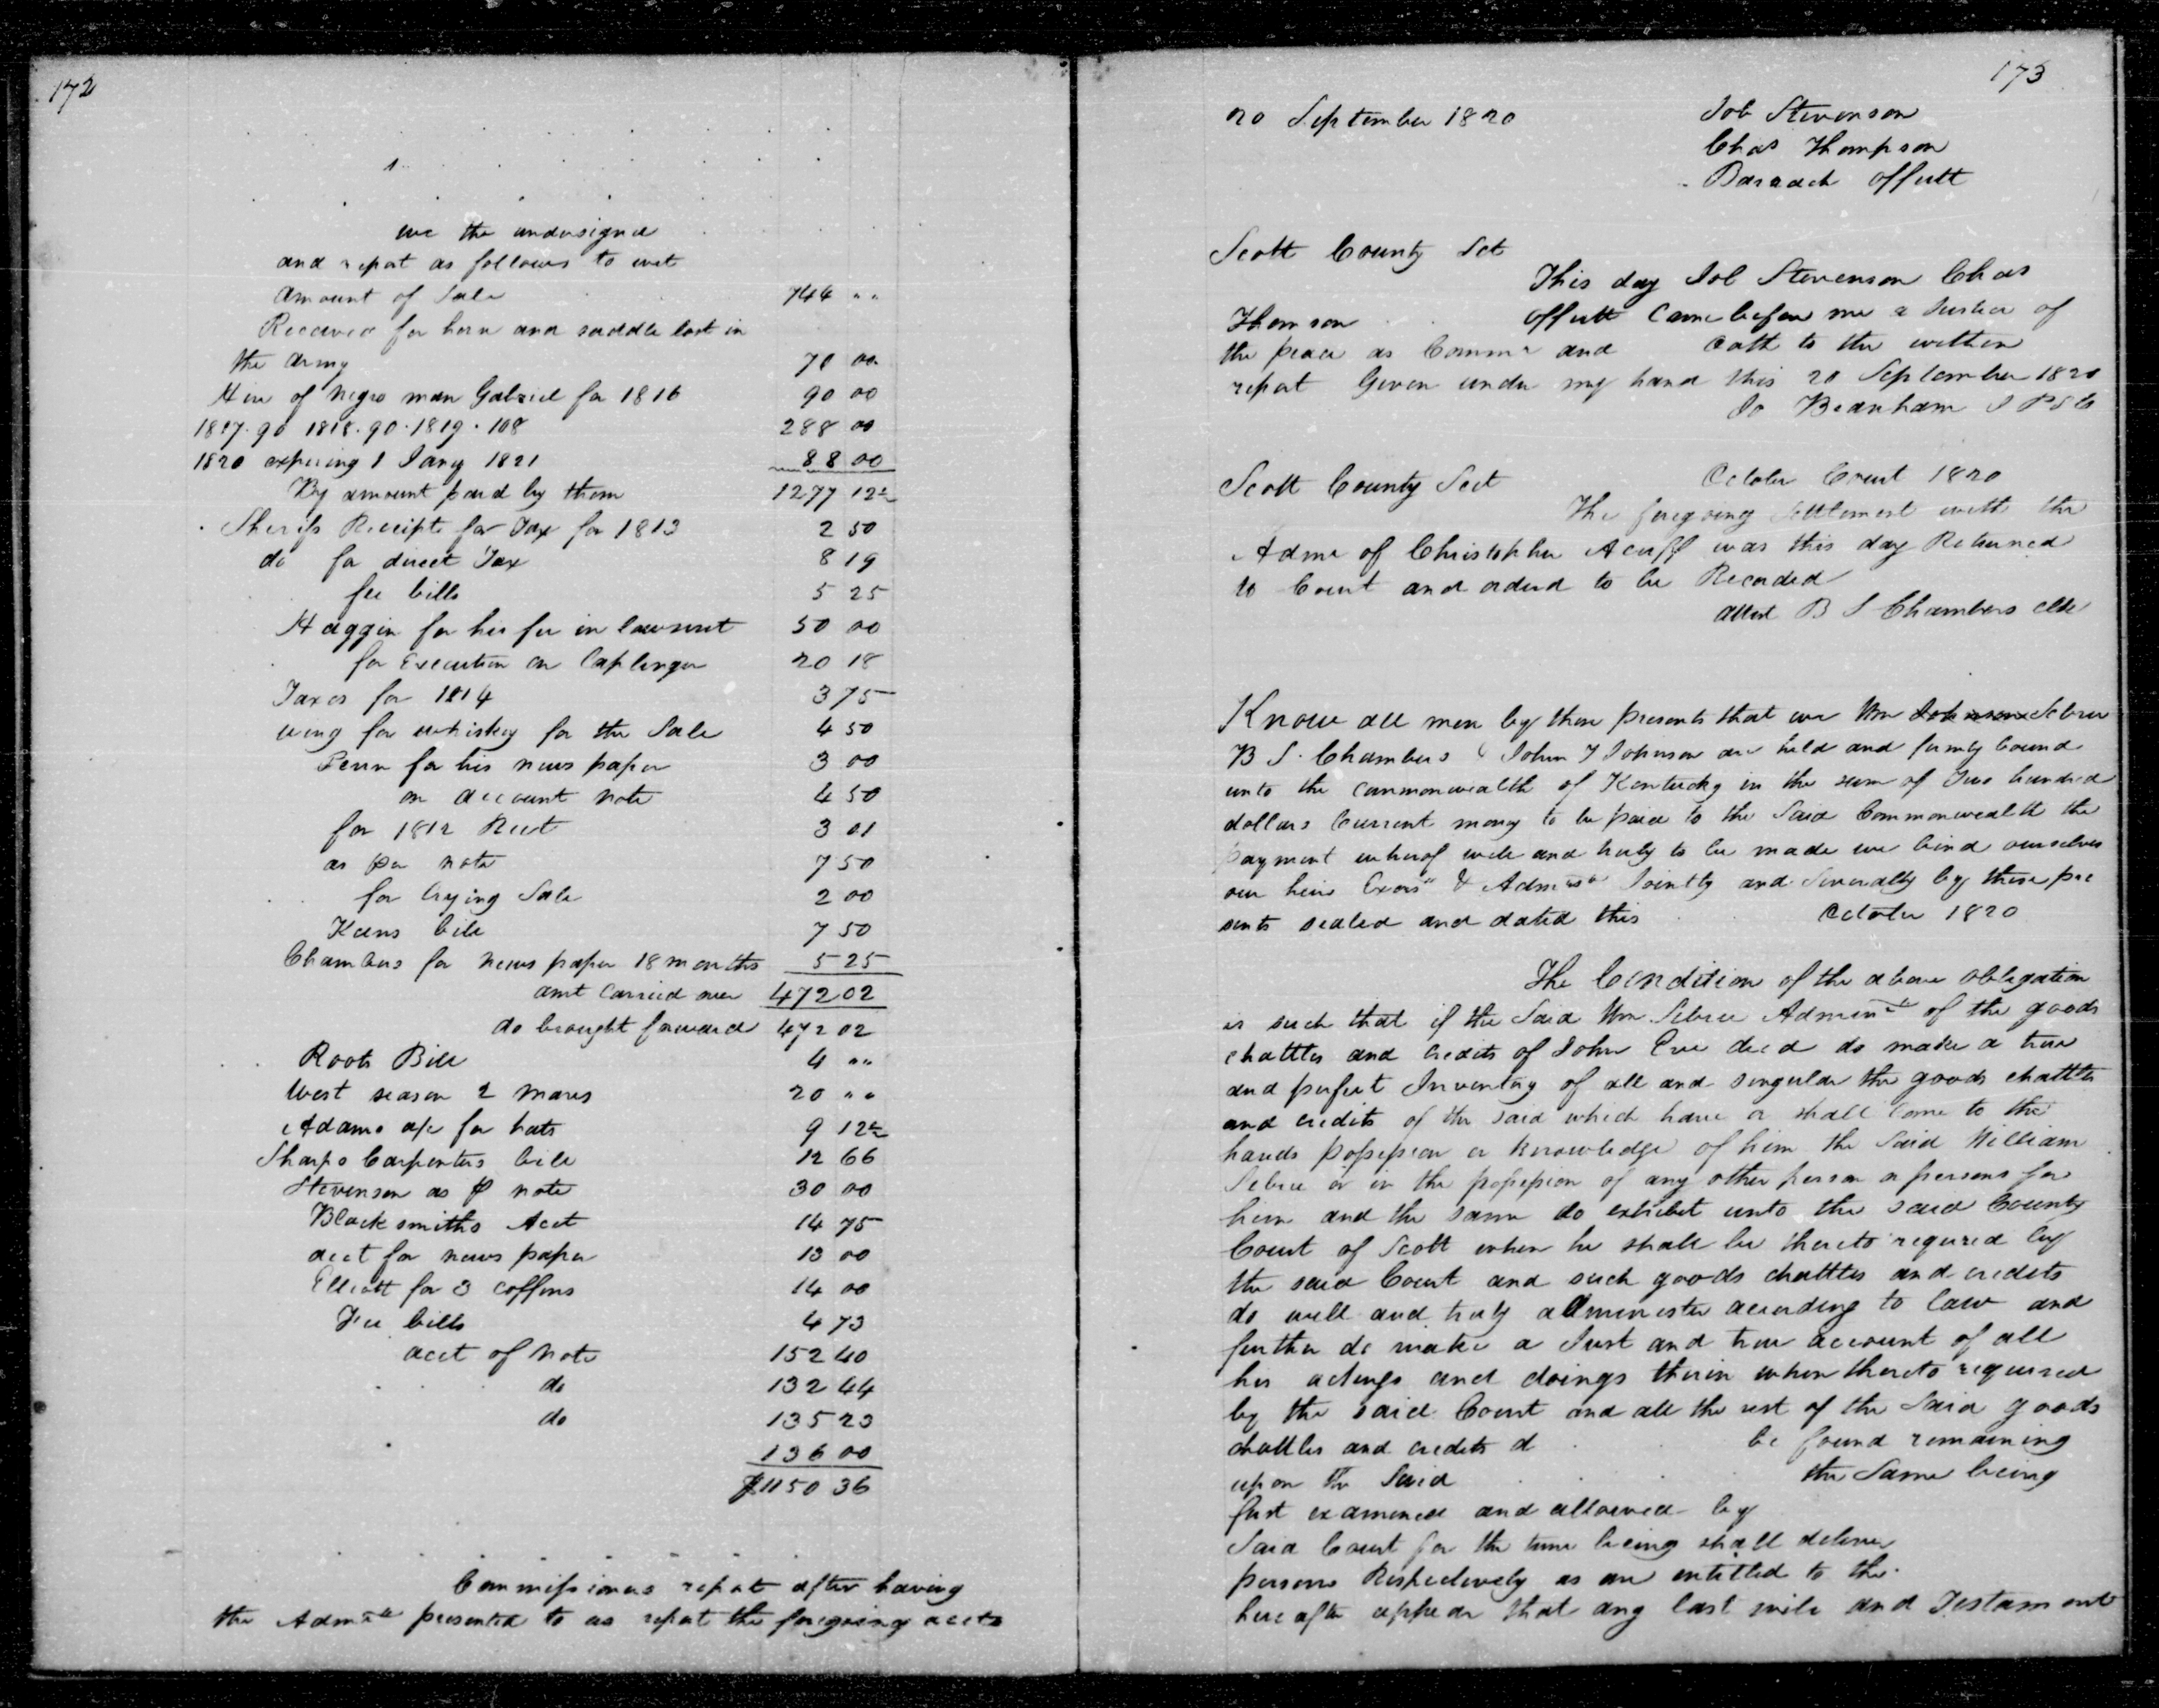 172
we the undersigned
and report as follows to wit
Amount of Sale 744 " "
Received for horse and saddle lost in
the Army 70 00
Hire of Negro man Gabriel for 1816 90 00
1817. 90 1818. 90. 1819. 108 288 00
1820 expiring 1 Jany 1821 88 00
By amount paid by them 1277 12½
Sherifs Receipts for Tax for 1813 2 50
do for direct Tax 8 19
fee bills 5 25
Haggin for his fee in lawsuit 50 00
for Execution on Caplinger 20 18
Taxes for 1814 3 75
for whiskey for the Sale 4 50
Penn for his news paper 3 00
on account note 4 50
for 1812 Rect 3 01
as per note 7 50
for Crying Sale 2 00
Keens bill 7 50
Chambers for news paper 18 months 5 25
amt Carried over 472 02
do brought forward 472 02
Roots Bill 4 " "
West season 2 mares 20 " "
Adams a/c for hats 9 12½
Sharps Carpenters bill 12 66
Stevenson as ⅌ note 30 00
Blacksmiths Acct 14 75
acct for news paper 13 00
Elliott for 3 coffins 14 00
Fee bills 4 73
acct of note 152 40
do 132 44
do 135 23
136 00
$1150 36
Commissioners report after having
the Admrs presented to us report the foregoing accts
173
20 September 1820 Job Stevenson
Chas Thompson
Barrach Offutt
Scott County Sct
This day Job Stevenson Chas
Thomson Offutt Came before me a Justice of
the peace as Commr and oath to the within
report Given under my hand this 20 September 1820
Jo Branham J P S C
Scott County Sect October Court 1820
The foregoing Settlement with the
Admr of Christopher Acuff was this day Returned
to Court and ordered to be Recorded
attest B S Chambers clk
Know all men by these presents that we Wm Johnson Sebree
B S. Chambers & John T Johnson are held and firmly bound
unto the commonwealth of Kentucky in the sum of Two hundred
dollars Current money to be paid to the Said Commonwealth the
payment whereof well and truly to be made we bind ourselves
our heirs Exors & Admrs Jointly and Severally by these pre
sents sealed and dated this October 1820
The Condition of the above obligation
is such that if the Said Wm Sebree Adminr of the goods
chattles and credits of John Eve decd do make a true
and perfect Inventory of all and singular the goods chattles
and credits of the said which have or shall come to the
hands possession or knowledge of him the Said William
Sebree or in the possession of any other person or persons for
him and the same do exhibit unto the said County
Court of Scott when he shall be thereto required by
the said Court and such goods chattles and credits
do well and truly administer according to law and
further do make a Just and true account of all
his actings and doings therein when thereto required
by the said Court and all the rest of the Said goods
chattles and credits be found remaining
upon the Said the Same being
first examined and allowed by
Said Court for the time being shall deliver
persons Respectively as are entitled to the
hereafter appear that any last will and Testament